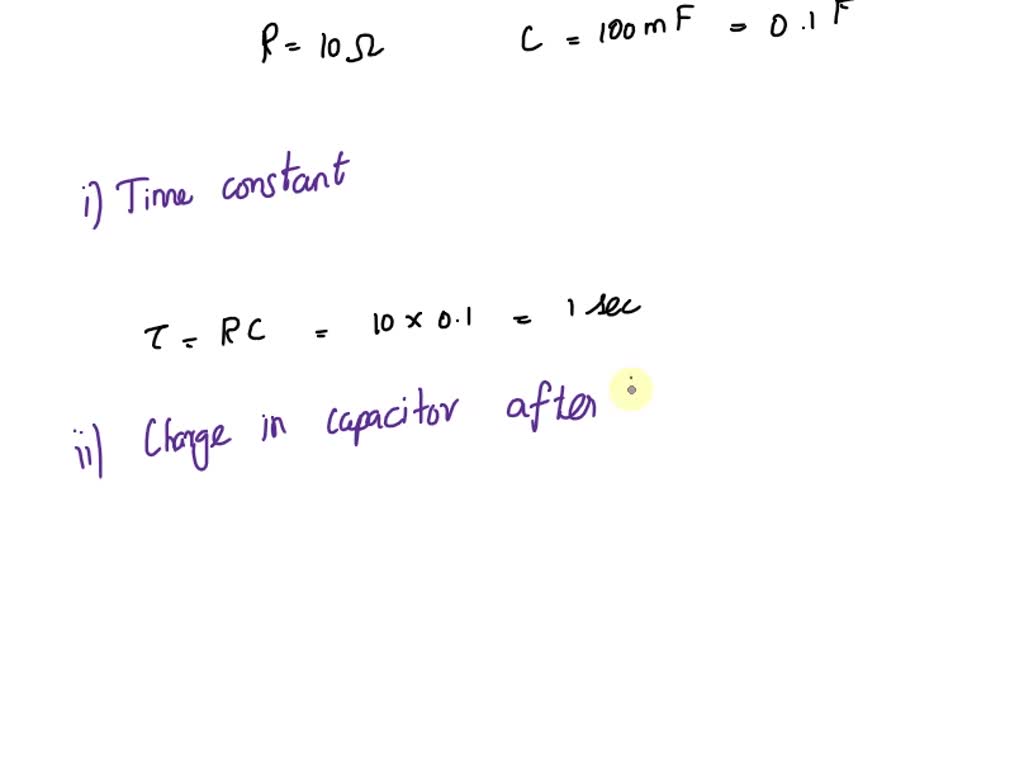 R = 10 Ω C = 100 m F = 0.1 F
i) Time constant
τ = RC = 10 × 0.1 = 1 sec
ii) Charge in capacitor after